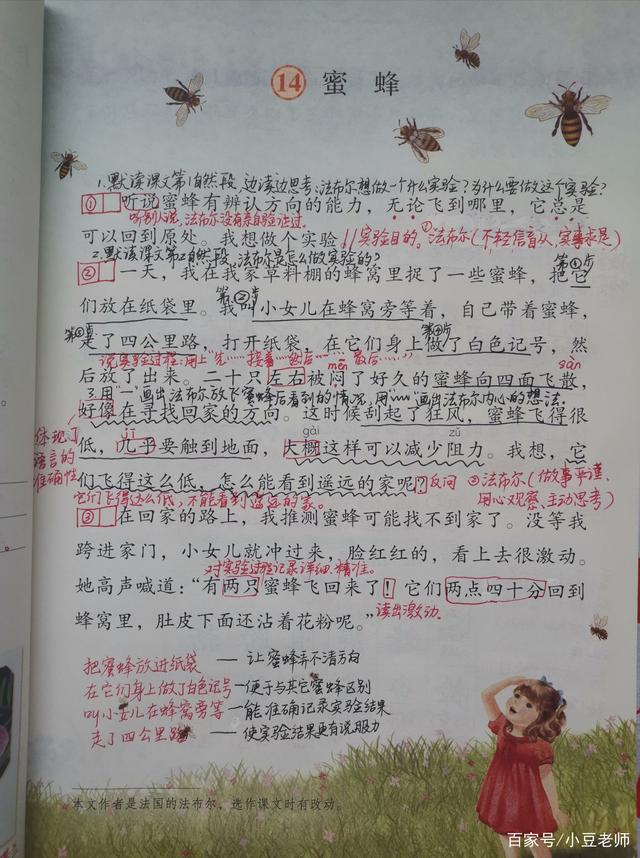 14 蜜蜂
1.默读课文第1自然段,边读边思考:法布尔想做一个什么实验?为什么要做这个实验?
① 听说蜜蜂有辨认方向的能力,无论飞到哪里,它总是
听别人说,法布尔没有亲自验证过.
可以回到原处。我想做个实验。
// 实验目的. ①法布尔(不轻信盲从,实事求是)
2.默读课文第2自然段,法布尔是怎么做实验的?
第①步
② 一天,我在我家草料棚的蜂窝里捉了一些蜜蜂,把它
第②步
们放在纸袋里。我叫小女儿在蜂窝旁等着,自己带着蜜蜂,
第③步
第④步
走了四公里路,打开纸袋,在它们身上做了白色记号,然
说实验过程:用上“先……接着……然后……最后……”
mēn
sàn
后放了出来。二十只左右被闷了好久的蜜蜂向四面飞散,
3.用“—”画出法布尔放飞蜜蜂后看到的情况,用“﹏”画出法布尔内心的想法.
好像在寻找回家的方向。这时候刮起了狂风,蜜蜂飞得很
体现了语言的准确性
jī
gài
zǔ
低,几乎要触到地面,大概这样可以减少阻力。我想,它
们飞得这么低,怎么能看到遥远的家呢?
反问
②法布尔(做事严谨、用心观察、主动思考)
它们飞得这么低,不能看到遥远的家。
③ 在回家的路上,我推测蜜蜂可能找不到家了。没等我
跨进家门,小女儿就冲过来,脸红红的,看上去很激动。
对实验过程记录详细、精准。
她高声喊道:“有两只蜜蜂飞回来了!它们两点四十分回到
读出激动.
蜂窝里,肚皮下面还沾着花粉呢。”
把蜜蜂放进纸袋 — 让蜜蜂弄不清方向
在它们身上做了白色记号 — 便于与其它蜜蜂区别
叫小女儿在蜂窝旁等 — 能准确记录实验结果
走了四公里路 — 使实验结果更有说服力
本文作者是法国的法布尔,选作课文时有改动。
百家号/小豆老师